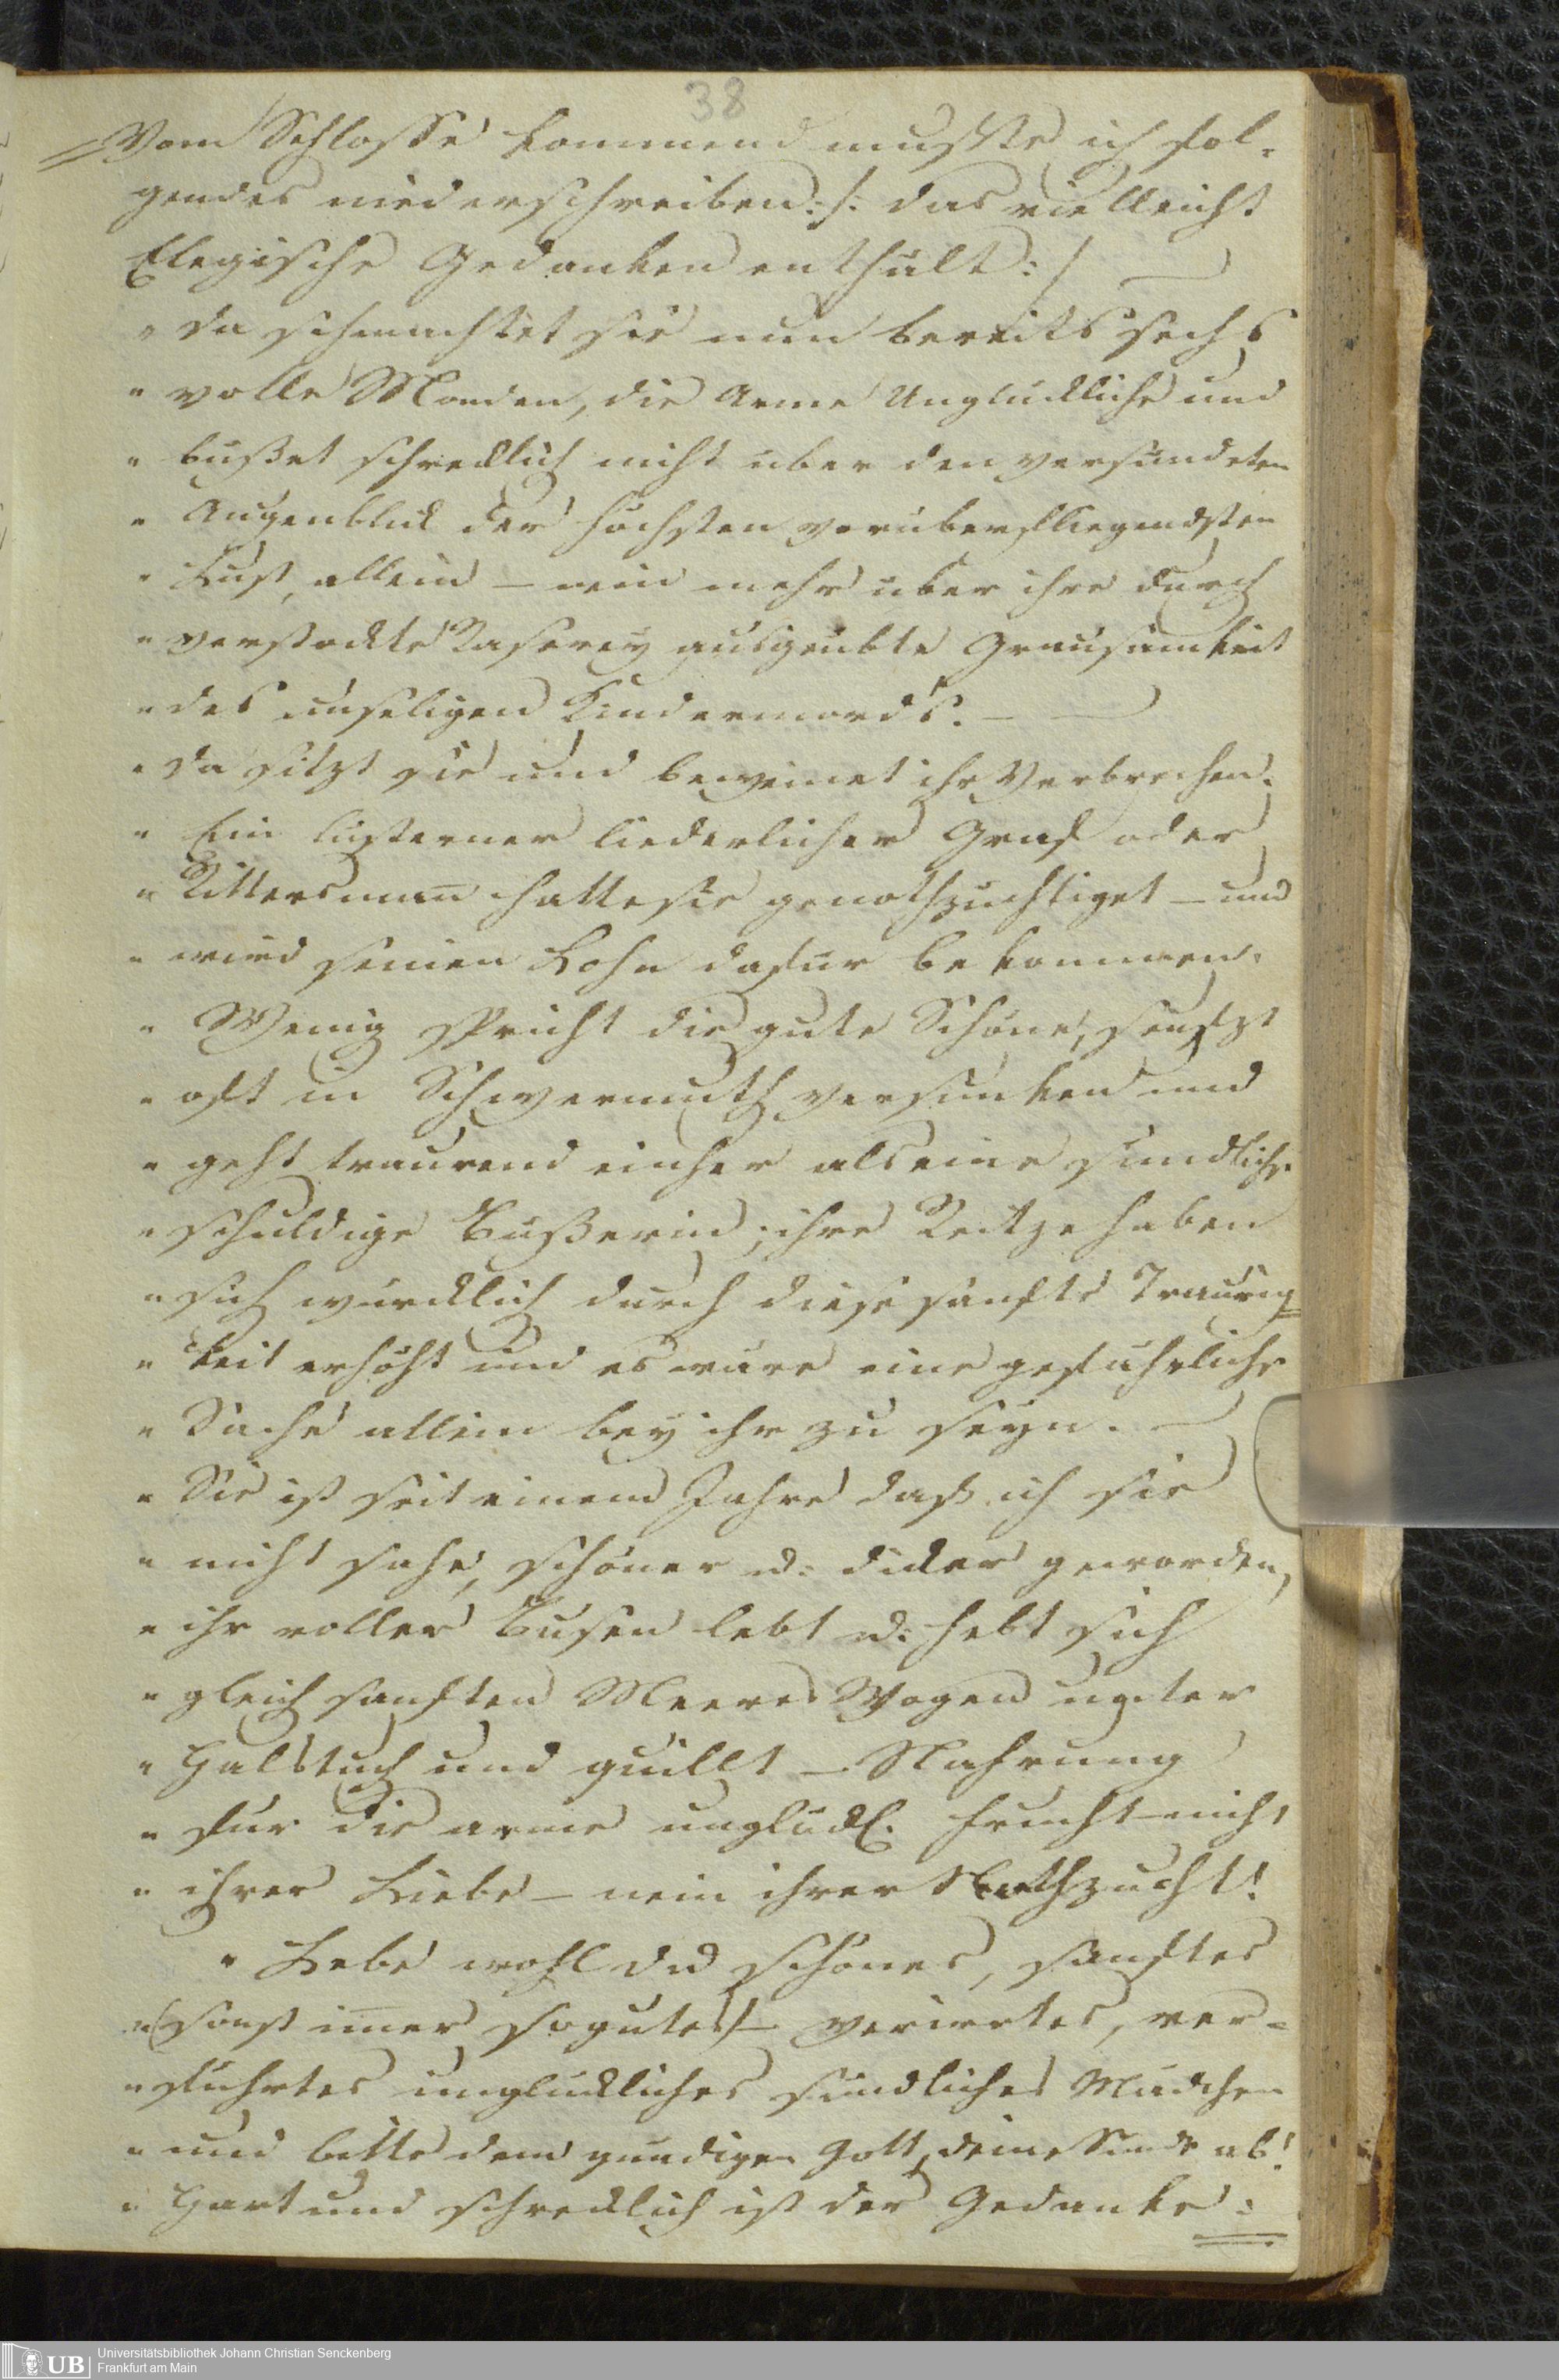 38
Vom Schlosse kommend musste ich fol-
gendes niederschreiben :/: das vielleicht
Elegische Gedanken enthält :/ —
" Da schmachtet sie nun bereits sechs
" volle Monden, die Arme Unglückliche und
" büßet schrecklich nicht über den versündeten
" Augenblick der höchsten vorüberfliegendsten
" Lust, allein — nein mehr über ihre durch
" verstockte Raserey ausgeübte Grausamkeit
" des unseligen Kindermords. — —
" Da sitzt sie und beweinet ihr Verbrechen.
" Ein lüsterner liederlicher Graf oder
" Rittersman̅ hatte sie genothzüchtiget — und
" wird seinen Lohn dafür bekommen.
" Wenig spricht die gute Schöne, seufzt
" oft in Schwermuth versunken und
" geht traurend einher als eine sündliche
" schuldige Büßerin; ihre Reitze haben
" sich würcklich durch diese sanfte Traurig=
" keit erhöht und es wäre eine gefährliche
" Sache allein bey ihr zu seyn. —
" Sie ist seit einem Jahre daß ich sie
" nicht sahe, schöner u: dicker geworden,
" ihr voller Busen lebt u: hebt sich
" gleich sanften Meeres Wogen unter
" Halstuch und quillt — Nahrung
" für die arme unglückl. Frucht nicht
" ihrer Liebe — nein ihrer Nothzucht!
" Lebe wohl du schönes, sanftes
" /sonst im̅er so gutes/ — verirrtes, ver=
" führtes unglückliches sündliches Mädchen
" und bitte dem gnädigen Gott, deine Sünde ab!
" Hart und schrecklich ist der Gedanke:
UB Universitätsbibliothek Johann Christian Senckenberg
Frankfurt am Main